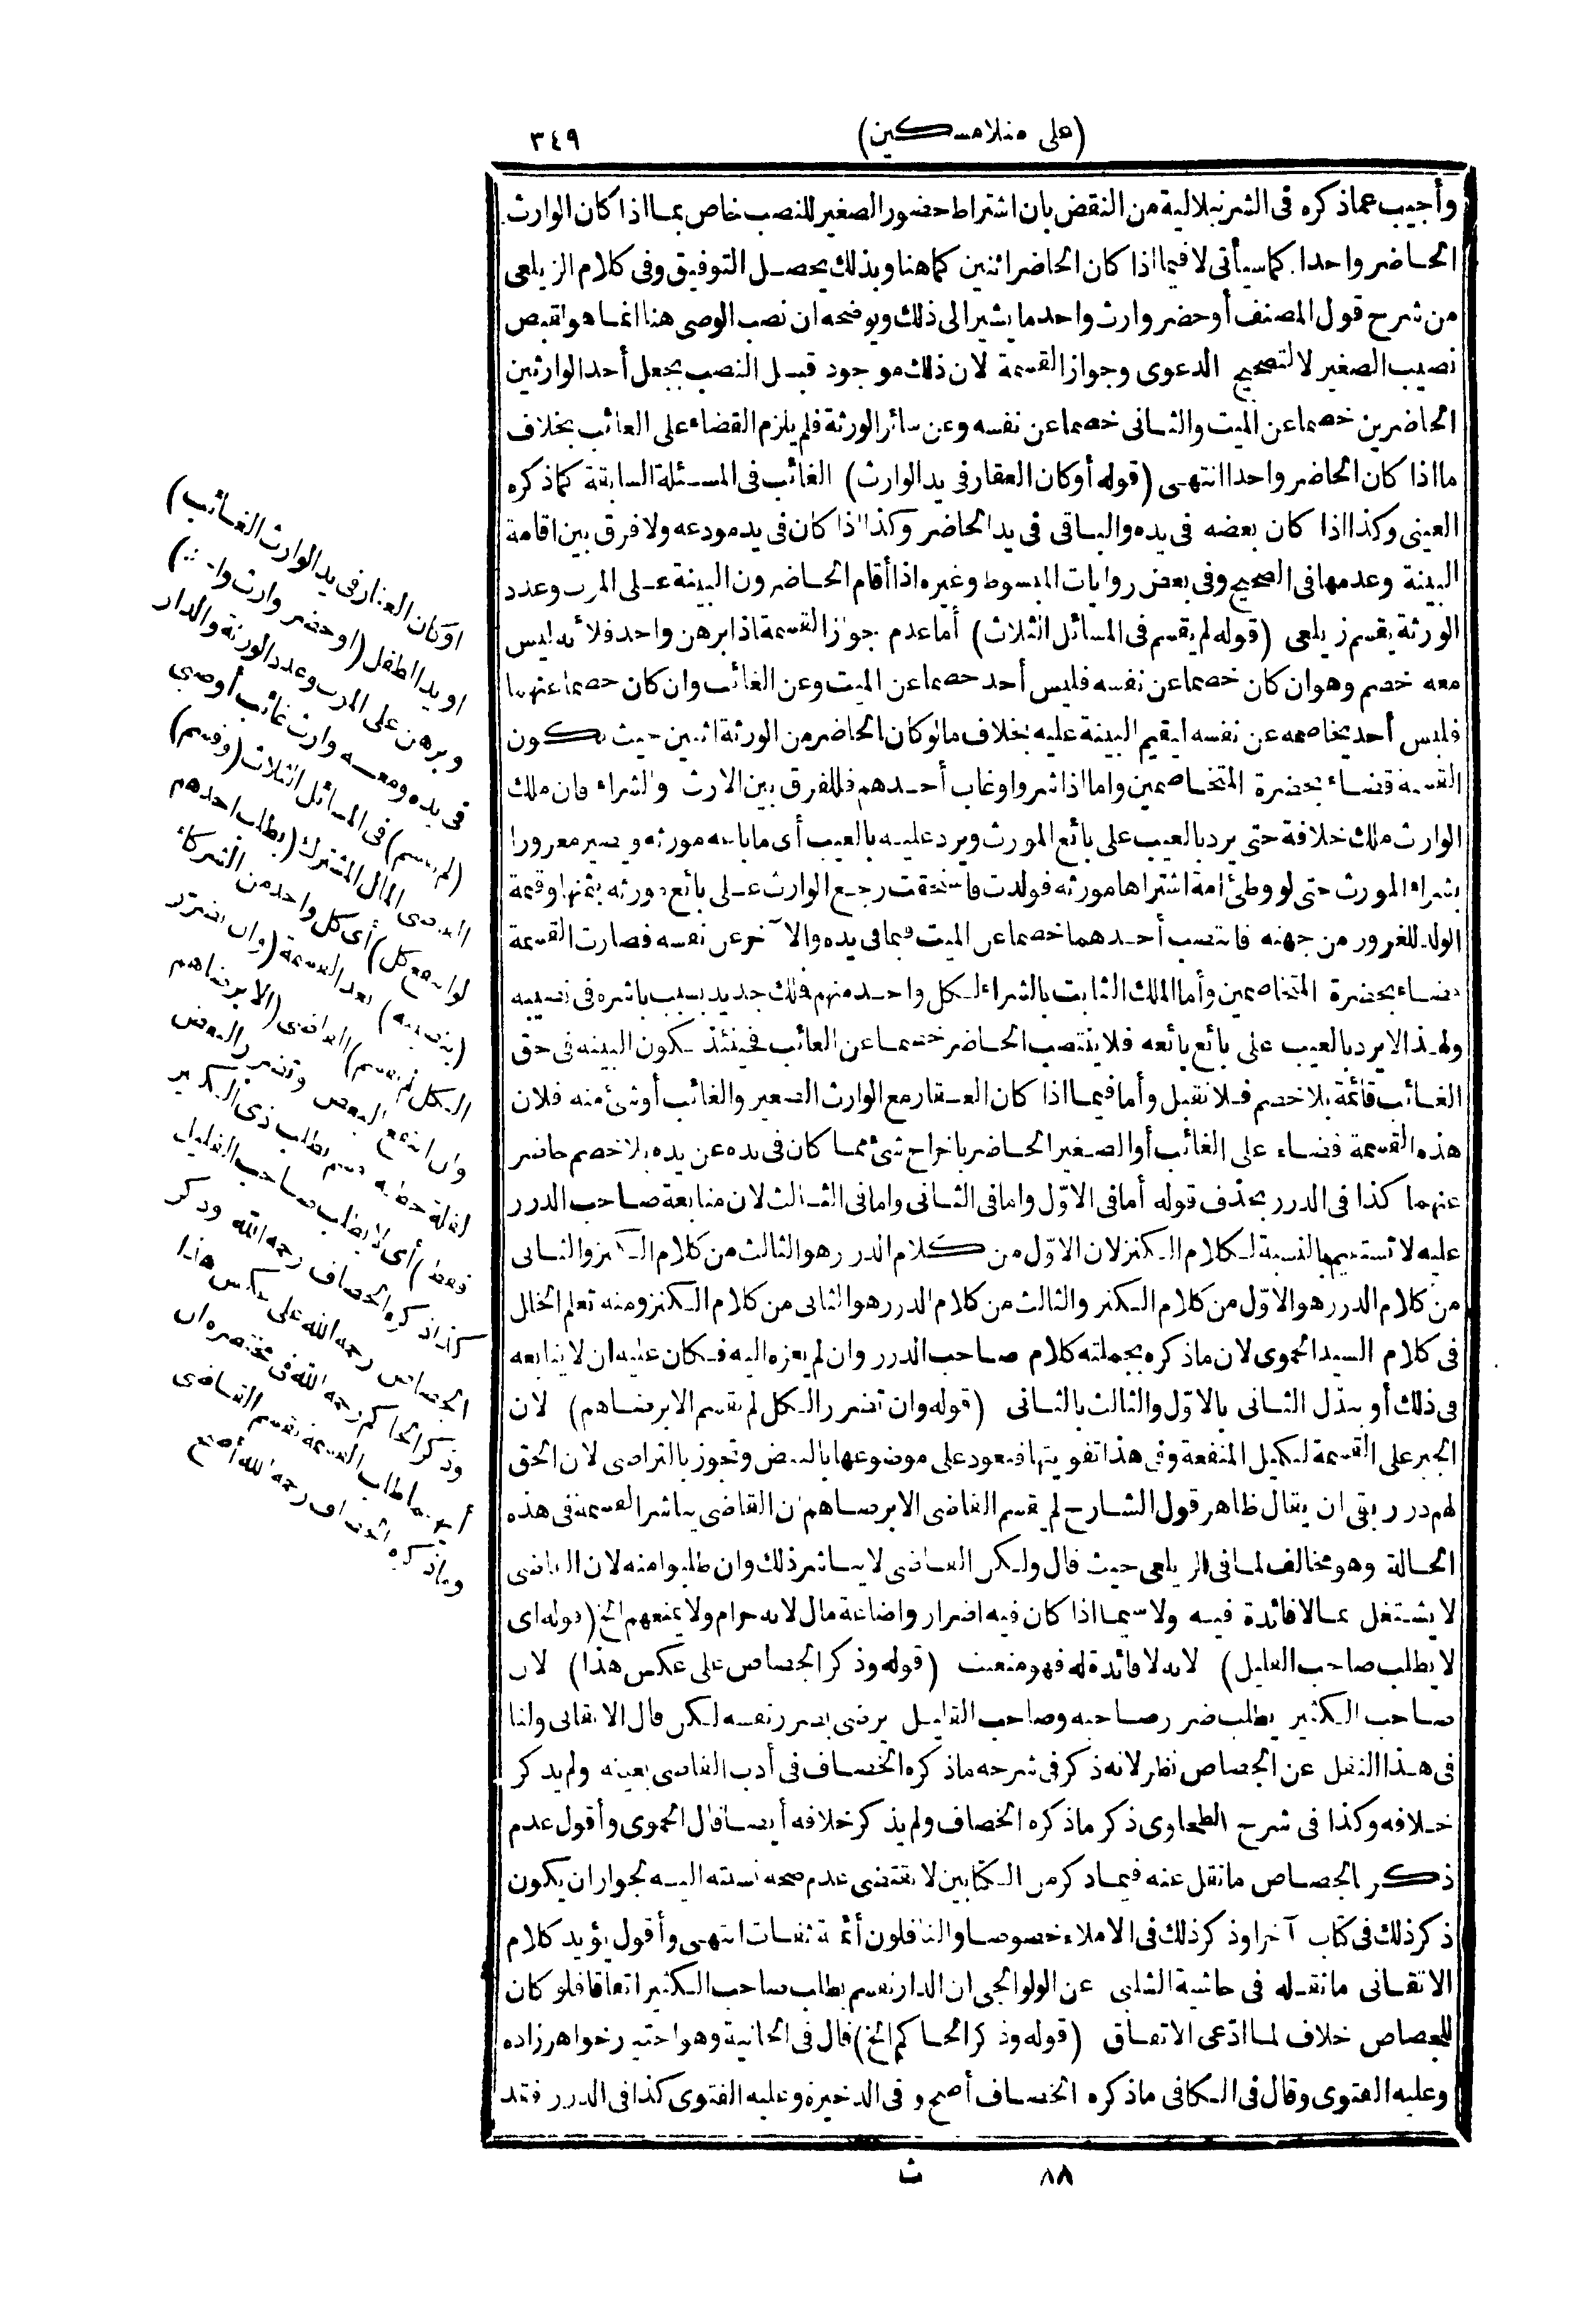 (على منلا مسكين) ٣٤٩
وأجيب عما ذكره في الشرنبلالية من النقض بان اشتراط حضور الصغير للنصب خاص بما اذا كان الوارث
الحاضر واحدا كما سيأتى لا فيما اذا كان الحاضر اثنين كما هنا وبذلك يحصل التوفيق وفى كلام الزيلعى
من شرح قول المصنف أو حضر وارث واحد ما يشير الى ذلك ويوضحه ان نصب الوصى هنا انما هو لقبض
نصيب الصغير لا لتصحيح الدعوى وجواز القسمة لان ذلك موجود قبل النصب بجعل أحد الوارثين
الحاضرين خصما عن الميت والثانى خصما عن نفسه وعن سائر الورثة فلم يلزم القضاء على الغائب بخلاف
ما اذا كان الحاضر واحدا انتهى (قوله أو كان العقار فى يد الوارث) الغائب فى المسئلة السابقة كما ذكره
العينى وكذا اذا كان بعضه فى يده والباقى فى يد الحاضر وكذا اذا كان فى يد مودعه ولا فرق بين اقامة
البينة وعدمها فى الصحيح وفى بعض روايات المبسوط وغيره اذا أقام الحاضرون البينة على الموت وعدد
الورثة يقسم زيلعى (قوله لم يقسم فى المسائل الثلاث) أما عدم جواز القسمة اذا برهن واحد فلأنه ليس
معه خصم وهو ان كان خصما عن نفسه فليس أحد خصما عن الميت وعن الغائب وان كان خصما عنهما
فليس أحد يخاصمه عن نفسه ليقيم البينة عليه بخلاف ما لو كان الحاضر من الورثة اثنين حيث تكون
القسمة قضاء بحضرة المتخاصمين واما اذا شروا وغاب أحدهم فللفرق بين الارث والشراء فان ملك
الوارث ملك خلافة حتى يرد بالعيب على بائع المورث ويرد عليه بالعيب أى ما باعه مورثه ويصير مغرورا
بشراء المورث حتى لو وطئ أمة اشتراها مورثه فولدت فاستحقت رجع الوارث على بائع مورثه بثمنها وقيمة
الولد للغرور من جهته فانتصب أحدهما خصما عن الميت فيما فى يده والآخر عن نفسه فصارت القسمة
قضاء بحضرة المتخاصمين وأما الملك الثابت بالشراء لكل واحد منهم فملك جديد بسبب باشره فى نصيبه
ولهذا لا يرد بالعيب على بائع بائعه فلا ينتصب الحاضر خصما عن الغائب فحينئذ تكون البينة فى حق
الغائب قائمة بلا خصم فلا تقبل وأما فيما اذا كان العقار مع الوارث الصغير والغائب أو شئ منه فلان
هذه القسمة قضاء على الغائب أو الصغير الحاضر باخراج شئ مما كان فى يده عن يده بلا خصم حاضر
عنهما كذا فى الدرر بحذف قوله أما فى الاوّل واما فى الثانى واما فى الثالث لان متابعة صاحب الدرر
عليه لا تستقيم بالنسبة لكلام الكنز لان الاوّل من كلام الدرر هو الثالث من كلام الكنز والثانى
من كلام الدرر هو الاوّل من كلام الكنز والثالث من كلام الدرر هو الثانى من كلام الكنز ومنه تعلم الخلل
فى كلام السيد الحموى لان ما ذكره بجملته كلام صاحب الدرر وان لم يعزه اليه فكان عليه ان لا يتابعه
فى ذلك أو يبدل الثانى بالاوّل والثالث بالثانى (قوله وان تضرر الكل لم يقسم الا برضاهم) لان
الجبر على القسمة لتكميل المنفعة وفى هذا تفويتها فيعود على موضوعها بالنقض وتجوز بالتراضى لان الحق
لهم درر بقى ان يقال ظاهر قول الشارح لم يقسم القاضى الا برضاهم ان القاضى يباشر القسمة فى هذه
الحالة وهو مخالف لما فى الزيلعى حيث قال ولكن القاضى لا يباشر ذلك وان طلبوا منه لان القاضى
لا يشتغل بما لا فائدة فيه ولا سيما اذا كان فيه اضرار واضاعة مال لانه حرام ولا يمنعهم الخ (قوله أى
لا يطلب صاحب القليل) لانه لا فائدة له فهو متعنت (قوله وذكر الجصاص على عكس هذا) لان
صاحب الكثير يطلب ضرر صاحبه وصاحب القليل يرضى بضرر نفسه لكن قال الاتقانى ولنا
فى هذا النقل عن الجصاص نظر لانه ذكر فى شرحه ما ذكره الخصاف فى أدب القاضى بعينه ولم يذكر
خلافه وكذا فى شرح الطحاوى ذكر ما ذكره الخصاف ولم يذكر خلافه أيضا قال الحموى وأقول عدم
ذكر الجصاص ما نقل عنه فيما ذكر من الكتابين لا يقتضى عدم صحة نسبته اليه لجواز ان يكون
ذكر ذلك فى كتاب آخر او ذكر ذلك فى الاملاء خصوصا والناقلون أئمة ثقات انتهى وأقول يؤيد كلام
الاتقانى ما نقله فى حاشية الشلبى عن الولوالجى ان الدار تقسم بطلب صاحب الكثير اتفاقا فلو كان
للجصاص خلاف لما ادّعى الاتفاق (قوله وذكر الحاكم الخ) قال فى الخانية وهو اختيار خواهر زاده
وعليه الفتوى وقال فى الكافى ما ذكره الخصاف أصح وفى الذخيرة وعليه الفتوى كذا فى الدرر فقد
٨٨ ث
او كان العقار فى يد الوارث الغائب)
او يد الطفل (او حضر وارث وا
وبرهن على الموت وعدد الورثة والدار
فى يده ومعه وارث غائب أو صبى
(لم يقسم) فى المسائل الثلاث (وقسم)
القاضى المال المشترك (بطلب احدهم
لو انتفع كل) أى كل واحد من الشركاء
(بنصيبه) بعد القسمة (وان تضرر
الكل لم يقسم) القاضى (الا برضاهم
وان انتفع البعض وتضرر البعض
لقلة حظه قسم بطلب ذى الكثير
فقط) أى لا يطلب صاحب القليل
كذا ذكره الخصاف رحمه الله وذكر
الجصاص رحمه الله على عكس هذا
وذكر الحاكم رحمه الله فى مختصره ان
أيهما طلب القسمة يقسم القاضى
وما ذكره الخصاف رحمه الله أصح